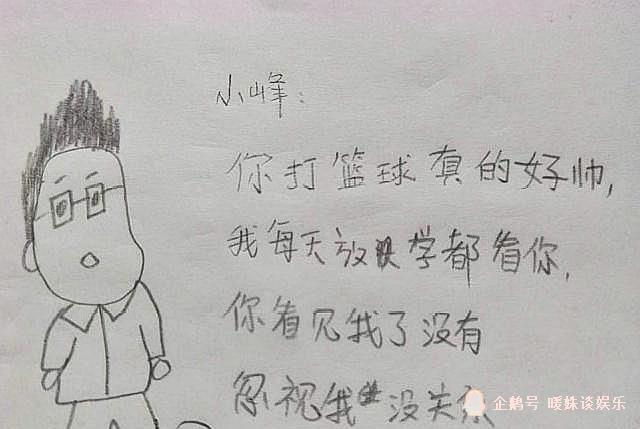 小峰:
你打篮球真的好帅,
我每天放学都看你,
你看见我了没有
忽视我没关系
企鹅号 暖姝谈娱乐